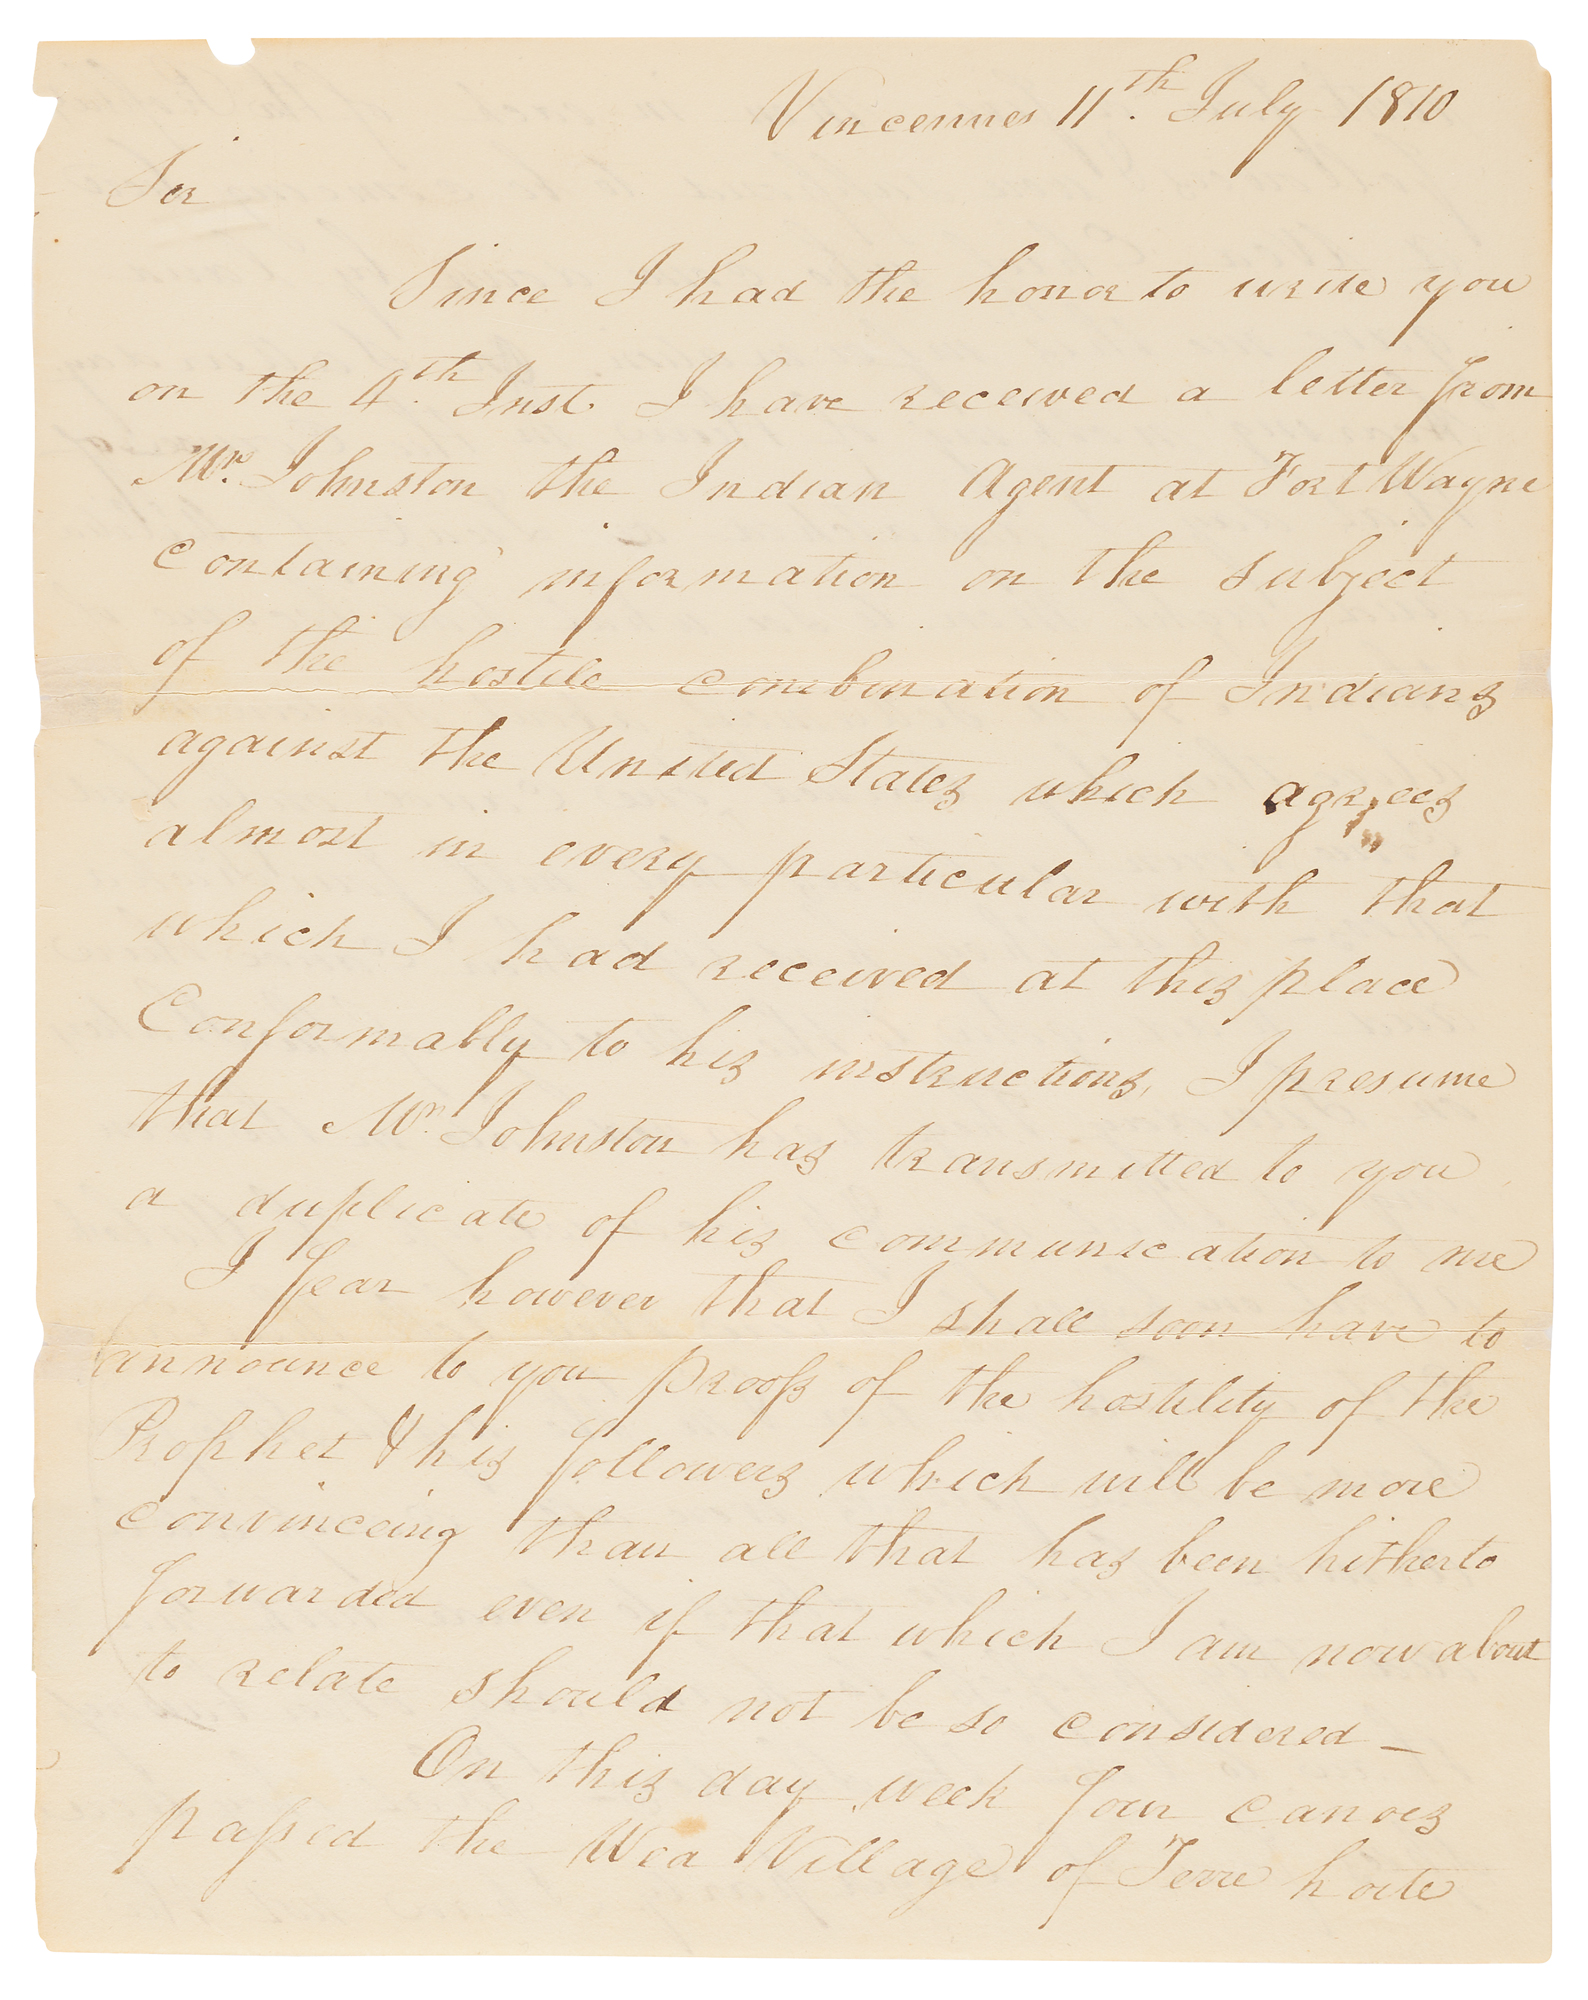 Vincennes 11th. July 1810
Sir
Since I had the honor to write you
on the 4th. Inst. I have received a letter from
Mr. Johnston the Indian Agent at Fort Wayne
containing information on the subject
of the hostile combination of Indians
against the United States which agrees
almost in every particular with that
which I had received at this place
Conformably to his instructions, I presume
that Mr. Johnston has transmitted to you
a duplicate of his communication to me
I fear however that I shall soon have to
announce to you proofs of the hostility of the
Prophet & his followers which will be more
convinceing than all that has been hitherto
forwarded even if that which I am now about
to relate should not be so considered –
On this day week four canoes
passed the Wea Village of Terre hoite